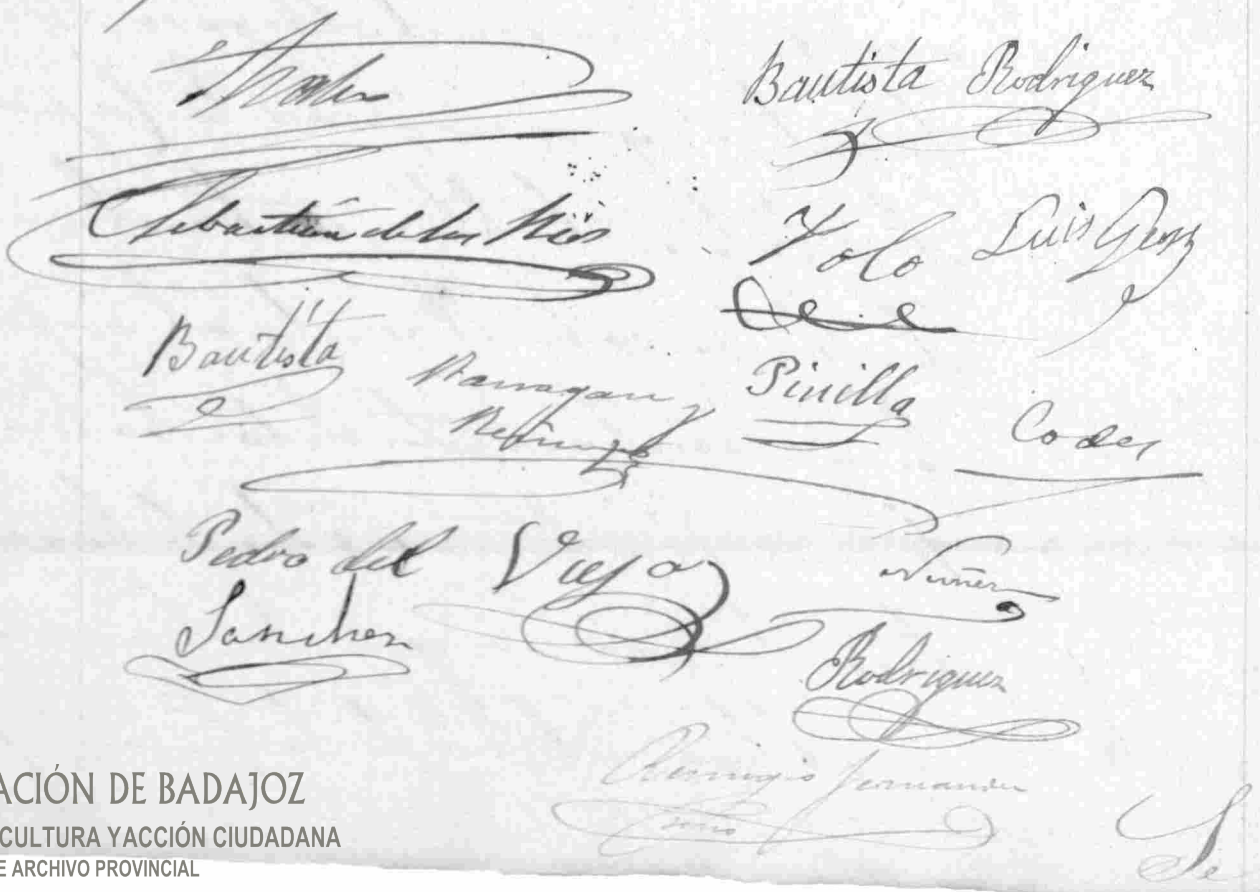 Bautista Rodriguez
Sebastián de los Ríos
Yolo Luis
Bautista
Barragan y
Pinilla
Pedro del Viejo
Nuñez
Sanchez
Rodriguez
Remigio Fernandez
ACIÓN DE BADAJOZ
CULTURA YACCIÓN CIUDADANA
E ARCHIVO PROVINCIAL